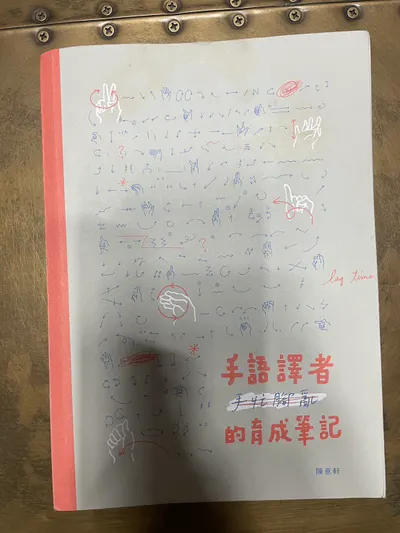 ?
?
lag time
手語譯者
手忙腳亂
的育成筆記
陳意軒